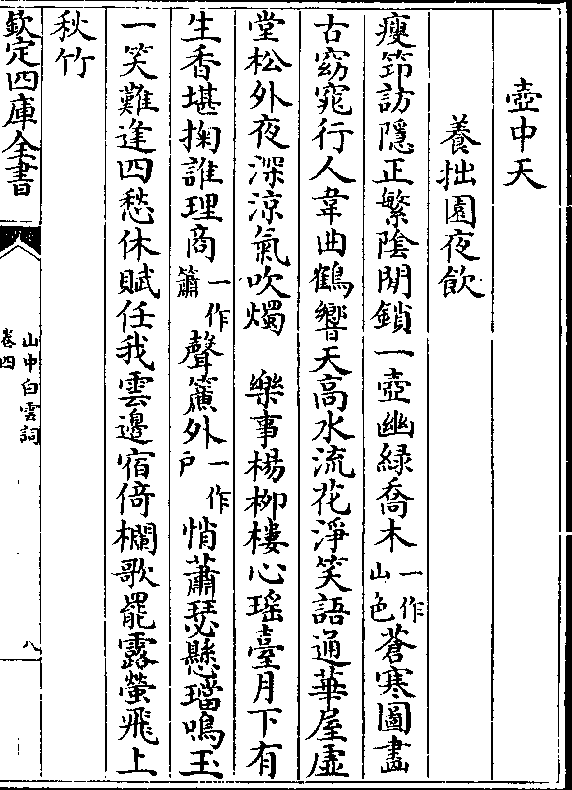 壺中天
養拙園夜飲
瘦筇訪隱正繁陰閉鎖一壺幽綠喬木一作山色蒼寒圖畫
古窈窕行人韋曲鶴響天高水流花淨笑語通華屋虛
堂松外夜深涼氣吹燭　樂事楊柳樓心瑤臺月下有
生香堪掬誰理商一作簫聲簾外一作戶悄蕭瑟懸璫鳴玉
一笑難逢四愁休賦任我雲邊宿倚欄歌罷露螢飛上
秋竹
欽定四庫全書
山中白雲詞
卷四
八